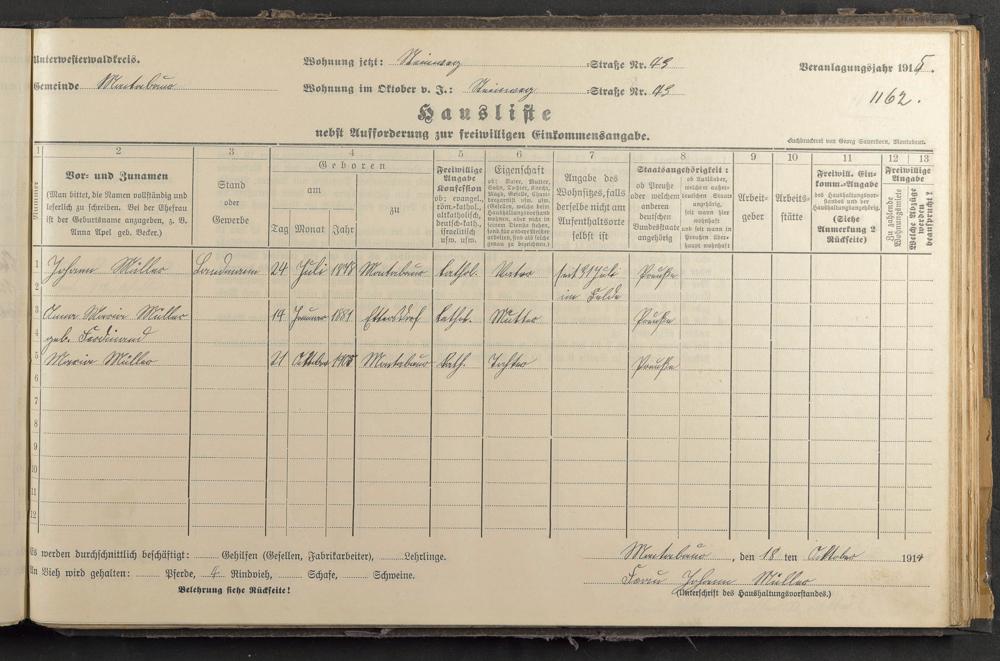 Unterwesterwaldkreis. Wohnung jetzt: Steinweg Straße Nr. 43 Veranlagungsjahr 1915.
Gemeinde Montabaur Wohnung im Oktober v. J.: Steinweg Straße Nr. 43 1162.
Hausliste
nebst Aufforderung zur freiwilligen Einkommensangabe.
Buchdruckerei von Georg Sauerborn, Montabaur.
1 2 3 4 5 6 7 8 9 10 11 12 13
Nummer
Vor- und Zunamen
(Man bittet, die Namen vollständig und
leserlich zu schreiben. Bei der Ehefrau
ist der Geburtsname anzugeben, z. B.
Anna Apel geb. Becker.)
Stand
oder
Gewerbe
Geboren
am
zu
Tag Monat Jahr
Freiwillige
Angabe
Konfession
ob: evangel.,
röm.-kathol.,
altkatholisch,
deutsch-kath.,
israelitisch
usw. usw.
Eigenschaft
ob: Vater, Mutter,
Angabe des
Wohnsitzes, falls
derselbe nicht am
Aufenthaltsorte
selbst ist
Staatsangehörigkeit:
ob Preuße
oder welchem
anderen
deutschen
Bundesstaate
angehörig
ob Ausländer,
welchem außer-
deutschen Staate
angehörig,
seit wann hier
wohnhaft
und seit wann in
Preußen über-
haupt wohnhaft
Arbeit-
geber
Arbeits-
stätte
Freiwill. Ein-
komm.-Angabe
des Haushaltungsvor-
standes und der
Haushaltungsangehörig.
(Siehe
Anmerkung 2
Rückseite)
Freiwillige
Angabe
Zu zahlende
Wohnungsmiete
Welche Abzüge
werden
beansprucht?
1 Johann Müller Landmann 24 Juli 1878 Montabaur kathol. Vater seit 31 Juli Preuße
2 im Felde
3 Anna Maria Müller 14 Januar 1881 Ettersdorf kathol. Mutter Preuße
4 geb. Ferdinand
5 Maria Müller 21 Oktober Montabaur kath. Tochter Preuße
6
7
8
9
10
11
12
Es werden durchschnittlich beschäftigt: Gehilfen (Gesellen, Fabrikarbeiter), Lehrlinge.
Montabaur, den 18 ten Oktober 1914
An Vieh wird gehalten: Pferde, 4 Rindvieh, Schafe, Schweine.
Frau Johann Müller
Belehrung siehe Rückseite!
(Unterschrift des Haushaltungsvorstandes.)